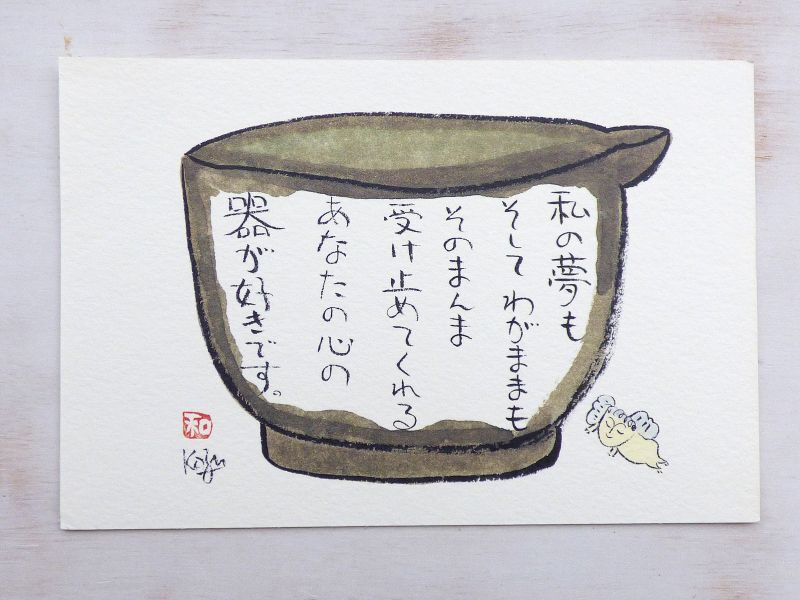 私の夢も
そして わがままも
そのまんま
受け止めてくれる
あなたの心の
器が好きです。
和